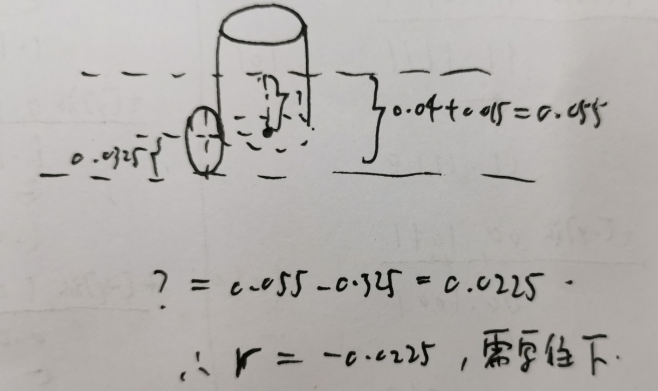 ?
0.04+0.015=0.055
0.0325
? = 0.055 - 0.325 = 0.0225 .
∴ r = -0.0225 , 需要往下.